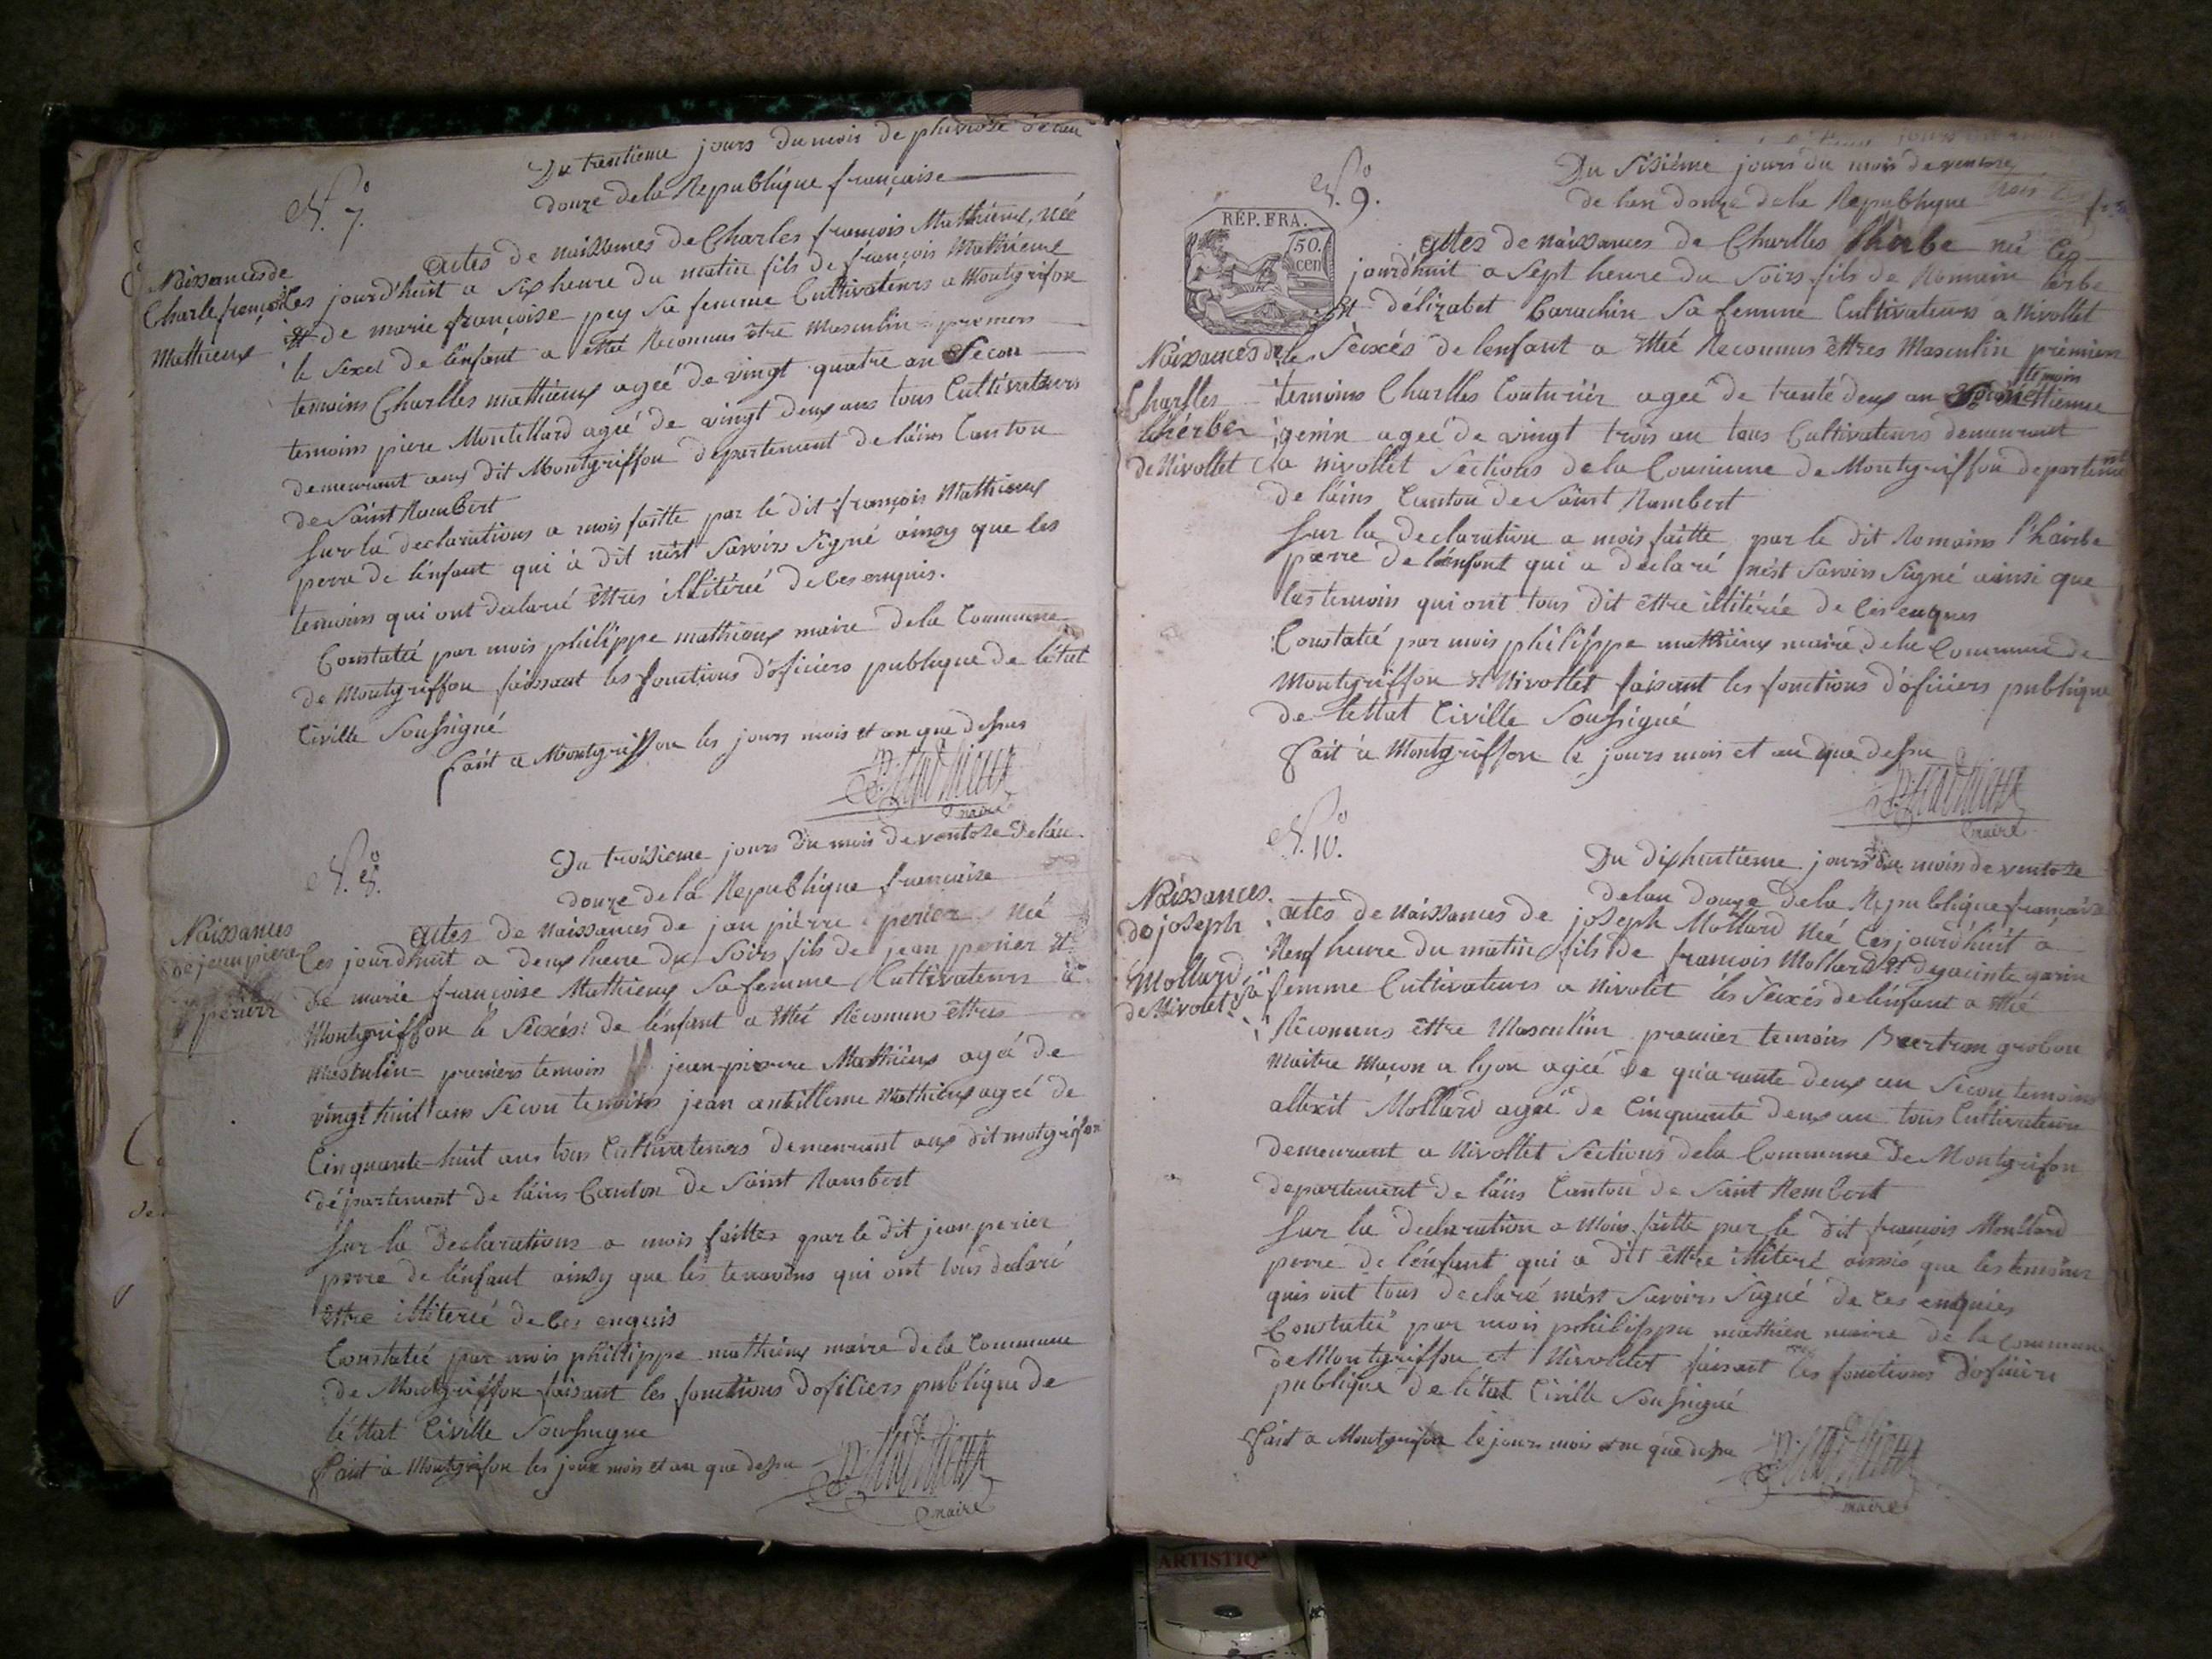 N.° 7.
Du trentieme jours du mois de pluviose de lan
douze de la Republique française
Naissances de
Charle françois
Mathieux
actes de naissances de Charles françois Mathieux, née
Ces jourd'huit a six heure du matin fils de françois Mathieux
et de marie françoise pey sa femme Cultivateurs a Montgrifon
le sexes de l'enfant a ettée Reconnus être Masculin = premiers
temoins Charlles mathieux ageé de vingt quatre an Secon
temoins piere Montillard ageé de vingt deux ans tous Cultivateurs
demeurant aux dit Montgriffon departement de láins Canton
de Saint Rambert
Sur la declarations a mois faitte par le dit françois Mathieux
perre de lénfant qui à dit nést Savoirs Signé áinsy que les
temoins qui ont declaré êttres illitérée de ces enquis.
Constatéé par mois philippe mathieux maire dela Commune
de Montgriffon faissant les fonctions dóficiers publique de létat
Civille Soussigné
fait a Montgriffon les jours mois et an que dessus
P. Mathieux
maire
N.° 8.
Du troisieme jours du mois de ventoze de lán
douze de la Republique francaise
Naissances
de jean piere
perier
actes de Naissances de jan piérre perier Née
Ces jourdhuit a deux heure du Soirs fils de jean perier et
de marie françoise Mathieux Sa femme Cultivateurs à
Montgriffon le Séxés de lénfant a ettée Réconnus êttres
masculin = premiers temoin jean-pierre Mathieux ageé de
vingt huit ans Secon temoins jean antillieme Mathieux ageé de
Cinquante-huit ans tous Cultivateurs demeurant aux dit motgrifon
département de láins Canton de Saint Rambert
Sur la Declarations a mois faittes par le dit jean perier
perre de lénfant ainsy que les temoins qui ont tous declaré
êttre illiterée de ces enquis
Constatéé par mois philippe mathieux maire de la Commune
de Montgriffon faisant les fonctions dóficiers publique de
léttat Civille Soussigne
fait à Montgrifon les jour mois et an que dessu
P. Mathieux
maire
N.° 9.
Du Sisiéme jours du mois de ventose
de lan douze de la Republique
RÉP. FRA.
50.
cen
actes de naissances de Charlles lhérbe né Ces
jourd'huit a Sept heure du Soirs fils de Romain lérbe
Et délizabet Carachin Sa femme Cultivateurs a Nivollet
Naissances de
Charlles
lhérbe
de Nivollet
le Séixés de lenfant a ettéé Reconnus êttres Masculin premiers
temoins Charlles Couturiér ageé de trente deux an Secon ettienne
temoin
genin ageé de vingt trois an tous Cultivateurs demeurant
a nivollet Sections de la Commune de Montgriffon departement
de láins Canton de Saint Rambert
Sur la declaration a mois faitte par le dit Romains l'háirbe
pærre de lénfont qui a declaré nést Savoirs Signé ainsi que
les temoin qui ont tous dit êttre illitérée de ces enques
Constatéé par mois philippe matthieux maire de la Commune de
Montgriffon et Nivollet faisant les fonctions dóficiers publique
de lettat Civille Soussigné
fait à Montgriffon le jours mois et an que dessu
P. Mathieux
maire
N.° 10.
Du dixhuitieme jours du mois de ventoze
de lan douze de la Republique francaise
Naissances
de joseph
Mollard
de Nivolet
actes de Naissances de joseph Mollard Née Ces jourdhuit à
Neuf heure du matin fils de francois Mollard et dejacinte genin
sa femme Cultivateurs a Nivolet lés Seixés de lénfant a ettéé
Réconnus êttre Masculin premier temoins Beertran grobon
Maitre Maçon a lyon ageé de quarante deux an Secon temoins
allexit Mollard ageé de Cinquante deux an tous Cultivateurs
demeurant a Nivollet Sections dela Commune de Montgrifon
departement de láiis Canton de Saint Rembert
Sur la declaration a Mois faitte par le dit francois Mollard
perre de lénfant qui a dit êttre illiteré ainsi que les temoins
quis ont tous declaré nést Savoirs Signé de ces enquies
Constatéé par mois philippe mathieu maire de la Commune
de Montgriffon et Nivollet faisant les fonctions dóficiers
publique de létat Civille Soussigné
fait a Montgrifon le jours mois et an que dessu
P. Mathieux
maire
ARTISTIQ